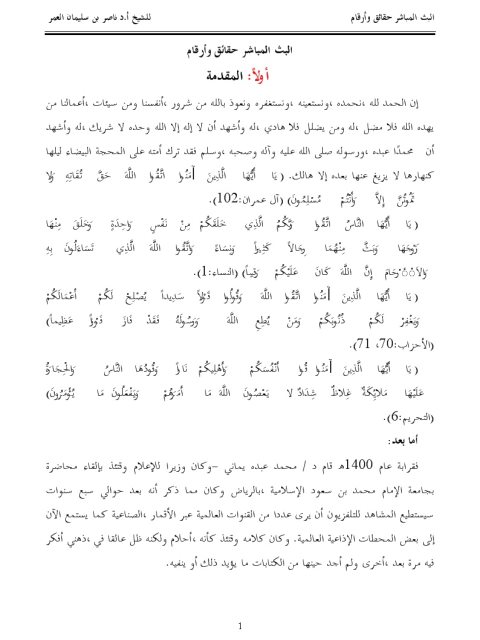 البث المباشر حقائق وأرقام للشيخ أ.د ناصر بن سليمان العمر
البث المباشر حقائق وأرقام
أولاً: المقدمة
إن الحمد لله ،نحمده ،ونستعينه ،ونستغفره ونعوذ بالله من شرور ،أنفسنا ومن سيئات ،أعمالنا من
يهده الله فلا مضل ،له ومن يضلل فلا هادي ،له وأشهد أن لا إله إلا الله وحده لا شريك ،له وأشهد
أن محمدًا عبده ،ورسوله صلى الله عليه وآله وصحبه ،وسلم فقد ترك أمته على المحجة البيضاء ليلها
كنهارها لا يزيغ عنها بعده إلا هالك. ( يَا أَيُّهَا الَّذِينَ آمَنُوا اتَّقُوا اللَّهَ حَقَّ تُقَاتِهِ وَلا
تَمُوتُنَّ إِلاَّ وَأَنْتُمْ مُسْلِمُونَ) (آل عمران:102).
( يَا أَيُّهَا النَّاسُ اتَّقُوا رَبَّكُمُ الَّذِي خَلَقَكُمْ مِنْ نَفْسٍ وَاحِدَةٍ وَخَلَقَ مِنْهَا
زَوْجَهَا وَبَثَّ مِنْهُمَا رِجَالاً كَثِيراً وَنِسَاءً وَاتَّقُوا اللَّهَ الَّذِي تَسَاءَلُونَ بِهِ
وَالأَرْحَامَ إِنَّ اللَّهَ كَانَ عَلَيْكُمْ رَقِيباً) (النساء:1).
( يَا أَيُّهَا الَّذِينَ آمَنُوا اتَّقُوا اللَّهَ وَقُولُوا قَوْلاً سَدِيداً يُصْلِحْ لَكُمْ أَعْمَالَكُمْ
وَيَغْفِرْ لَكُمْ ذُنُوبَكُمْ وَمَنْ يُطِعِ اللَّهَ وَرَسُولَهُ فَقَدْ فَازَ فَوْزاً عَظِيماً)
(الأحزاب:70، 71).
( يَا أَيُّهَا الَّذِينَ آمَنُوا قُوا أَنْفُسَكُمْ وَأَهْلِيكُمْ نَاراً وَقُودُهَا النَّاسُ وَالْحِجَارَةُ
عَلَيْهَا مَلائِكَةٌ غِلاظٌ شِدَادٌ لا يَعْصُونَ اللَّهَ مَا أَمَرَهُمْ وَيَفْعَلُونَ مَا يُؤْمَرُونَ)
(التحريم:6).
أما بعد:
فقرابة عام 1400هـ قام د / محمد عبده يماني –وكان وزيرا للإعلام وقتئذ بإلقاء محاضرة
بجامعة الإمام محمد بن سعود الإسلامية ،بالرياض وكان مما ذكر أنه بعد حوالي سبع سنوات
سيستطيع المشاهد للتلفزيون أن يرى عددا من القنوات العالمية عبر الأقمار ،الصناعية كما يستمع الآن
إلى بعض المحطات الإذاعية العالمية. وكان كلامه وقتئذ كأنه ،أحلام ولكنه ظل عالقا في ،ذهني أفكر
فيه مرة بعد ،أخرى ولم أجد حينها من الكتابات ما يؤيد ذلك أو ينفيه.
1